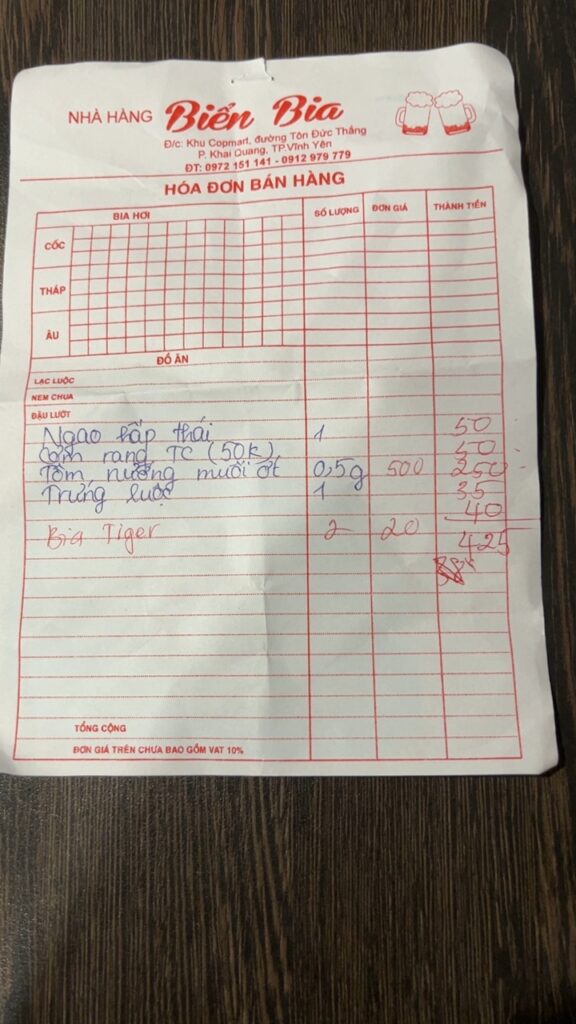 NHÀ HÀNG Biển Bia
Đ/c: Khu Copmart, đường Tôn Đức Thắng
P. Khai Quang, TP.Vĩnh Yên
ĐT: 0972 151 141 - 0912 979 779
HÓA ĐƠN BÁN HÀNG
BIA HƠI SỐ LƯỢNG ĐƠN GIÁ THÀNH TIỀN
CỐC
THÁP
ÂU
ĐỒ ĂN
LẠC LUỘC
NEM CHUA
ĐẬU LƯỚT
Ngao hấp thái 1 50
Cơm rang TC (50k) 50
Tôm nướng muối ớt 0,5g 500 250
Trứng luộc 1 35
40
Bia Tiger 2 20
425
TỔNG CỘNG
ĐƠN GIÁ TRÊN CHƯA BAO GỒM VAT 10%